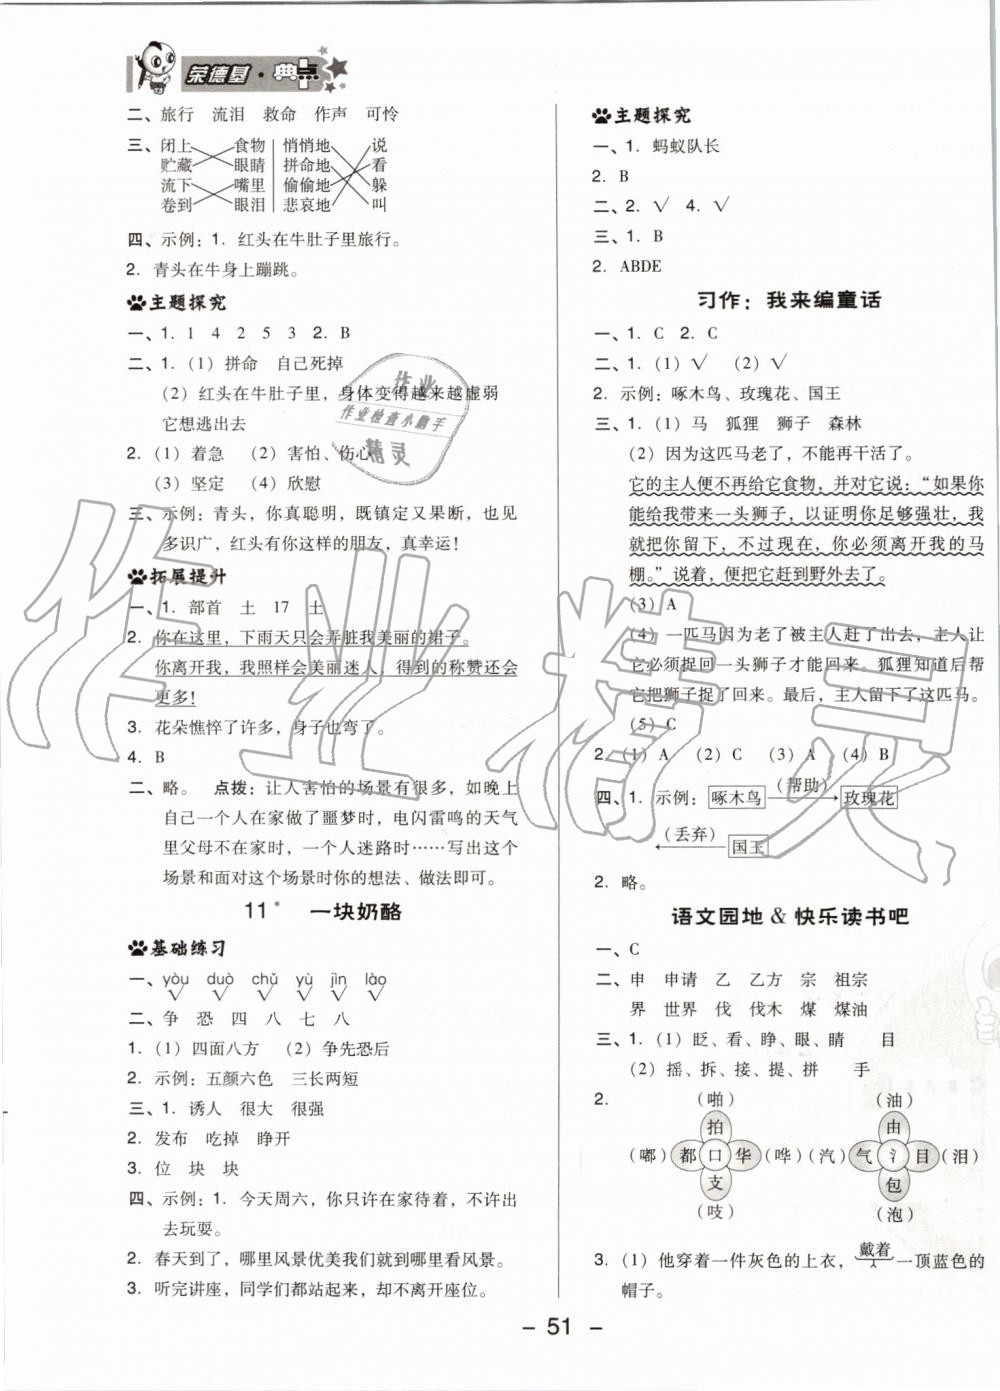 荣德基·典点
二、旅行 流泪 救命 作声 可怜
三、闭上 食物 悄悄地 说
贮藏 眼睛 拼命地 看
流下 嘴里 偷偷地 躲
卷到 眼泪 悲哀地 叫
四、示例：1. 红头在牛肚子里旅行。
2. 青头在牛身上蹦跳。
主题探究
一、1. 1 4 2 5 3 2. B
二、1.（1）拼命 自己死掉
（2）红头在牛肚子里，身体变得越来越虚弱
它想逃出去
2.（1）着急 （2）害怕、伤心
（3）坚定 （4）欣慰
三、示例：青头，你真聪明，既镇定又果断，也见
多识广，红头有你这样的朋友，真幸运！
拓展提升
一、1. 部首 土 17 土
2. 你在这里，下雨天只会弄脏我美丽的裙子。
你离开我，我照样会美丽迷人，得到的称赞还会
更多！
3. 花朵憔悴了许多，身子也弯了。
4. B
二、略。 点拨：让人害怕的场景有很多，如晚上
自己一个人在家做了噩梦时，电闪雷鸣的天气
里父母不在家时，一个人迷路时……写出这个
场景和面对这个场景时你的想法、做法即可。
11* 一块奶酪
基础练习
一、yòu duò chǔ yù jìn lào
√ √ √ √ √ √
二、争 恐 四 八 七 八
1.（1）四面八方 （2）争先恐后
2. 示例：五颜六色 三长两短
三、1. 诱人 很大 很强
2. 发布 吃掉 睁开
3. 位 块 块
四、示例：1. 今天周六，你只许在家待着，不许出
去玩耍。
2. 春天到了，哪里风景优美我们就到哪里看风景。
3. 听完讲座，同学们都站起来，却不离开座位。
主题探究
一、1. 蚂蚁队长
2. B
二、2. √ 4. √
三、1. B
2. ABDE
习作：我来编童话
一、1. C 2. C
二、1.（1）√ （2）√
2. 示例：啄木鸟、玫瑰花、国王
三、1.（1）马 狐狸 狮子 森林
（2）因为这匹马老了，不能再干活了。
它的主人便不再给它食物，并对它说：“如果你
能给我带来一头狮子，以证明你足够强壮，我
就把你留下，不过现在，你必须离开我的马
棚。”说着，便把它赶到野外去了。
（3）A
（4）一匹马因为老了被主人赶了出去，主人让
它必须捉回一头狮子才能回来。狐狸知道后帮
它把狮子捉了回来。最后，主人留下了这匹马。
（5）C
2.（1）A （2）C （3）A （4）B
四、1. 示例：啄木鸟 （帮助） 玫瑰花
（丢弃） 国王
2. 略。
语文园地 & 快乐读书吧
一、C
二、申 申请 乙 乙方 宗 祖宗
界 世界 伐 伐木 煤 煤油
三、1.（1）眨、看、睁、眼、睛 目
（2）摇、拆、接、提、拼 手
2. （啪） （油）
拍 由
（嘟） 都 口 华 （哗） （汽） 气 氵 目 （泪）
支 包
（吱） （泡）
3.（1）他穿着一件灰色的上衣，戴着一顶蓝色的
帽子。
– 51 –
作业
作业检查小帮手
精灵
作业精灵